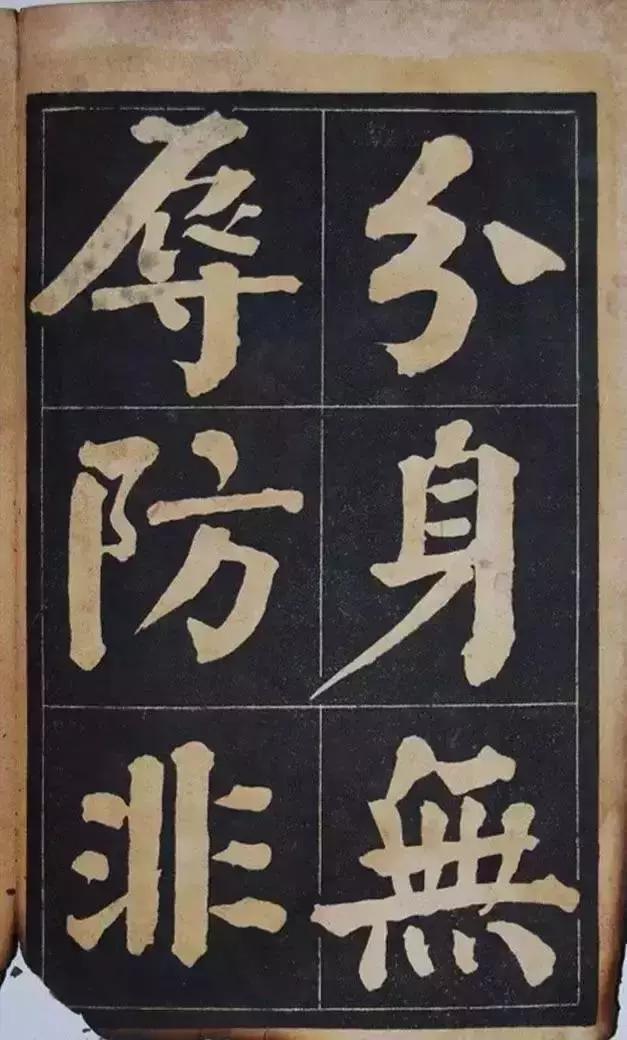 分身無
辱防非